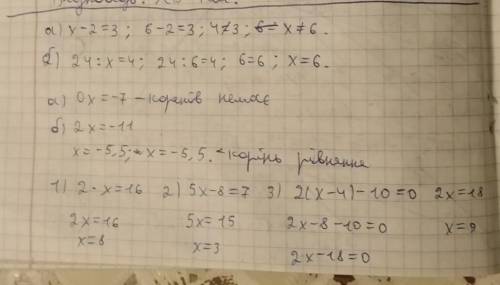 а) x-2=3; 6-2=3; 4≠3; 6= x≠6.
б) 24:x=4; 24:6=4; 6=6; x=6.
а) 0x=-7 - коренів немає
б) 2x=-11
x=-5,5; x=-5,5. - корінь рівняння
1) 2·x=16 2) 5x-8=7 3) 2(x-4)-10=0 2x=18
2x=16 5x=15 2x-8-10=0 x=9
x=8 x=3 2x-18=0